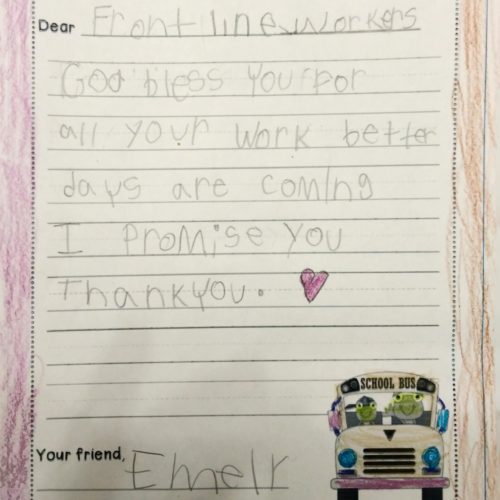 Dear Frontline workers
God bless you for
all your work better
days are coming
I promise you
Thankyou.
SCHOOL BUS
Your friend, Emelr